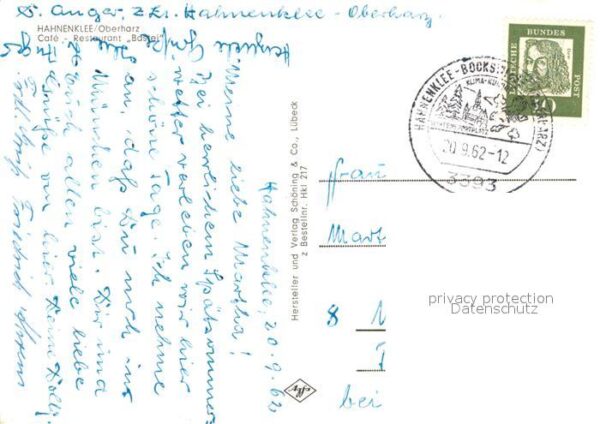 S. Anger, z. Zt. Hahnenklee-Oberharz
HAHNENKLEE/Oberharz
Café - Restaurant „Bastei"
Hahnenklee, 20.9.62
Meine liebe Martha!
Bei herrlichem Spätsommer-
wetter verleben wir hier
schöne Tage. Ich nehme
an, daß Du noch in
München bist. Dir und
Euch allen viele liebe
Grüße von Deine Dolly.
Herzliche Grüße
Hersteller und Verlag Schöning & Co., Lübeck
z Bestellnr. Hkl 217
DEUTSCHE BUNDESPOST
10
HAHNENKLEE-BOCKSWIESE
20.9.62-12
3393
Frau
8
bei
privacy protection
Datenschutz